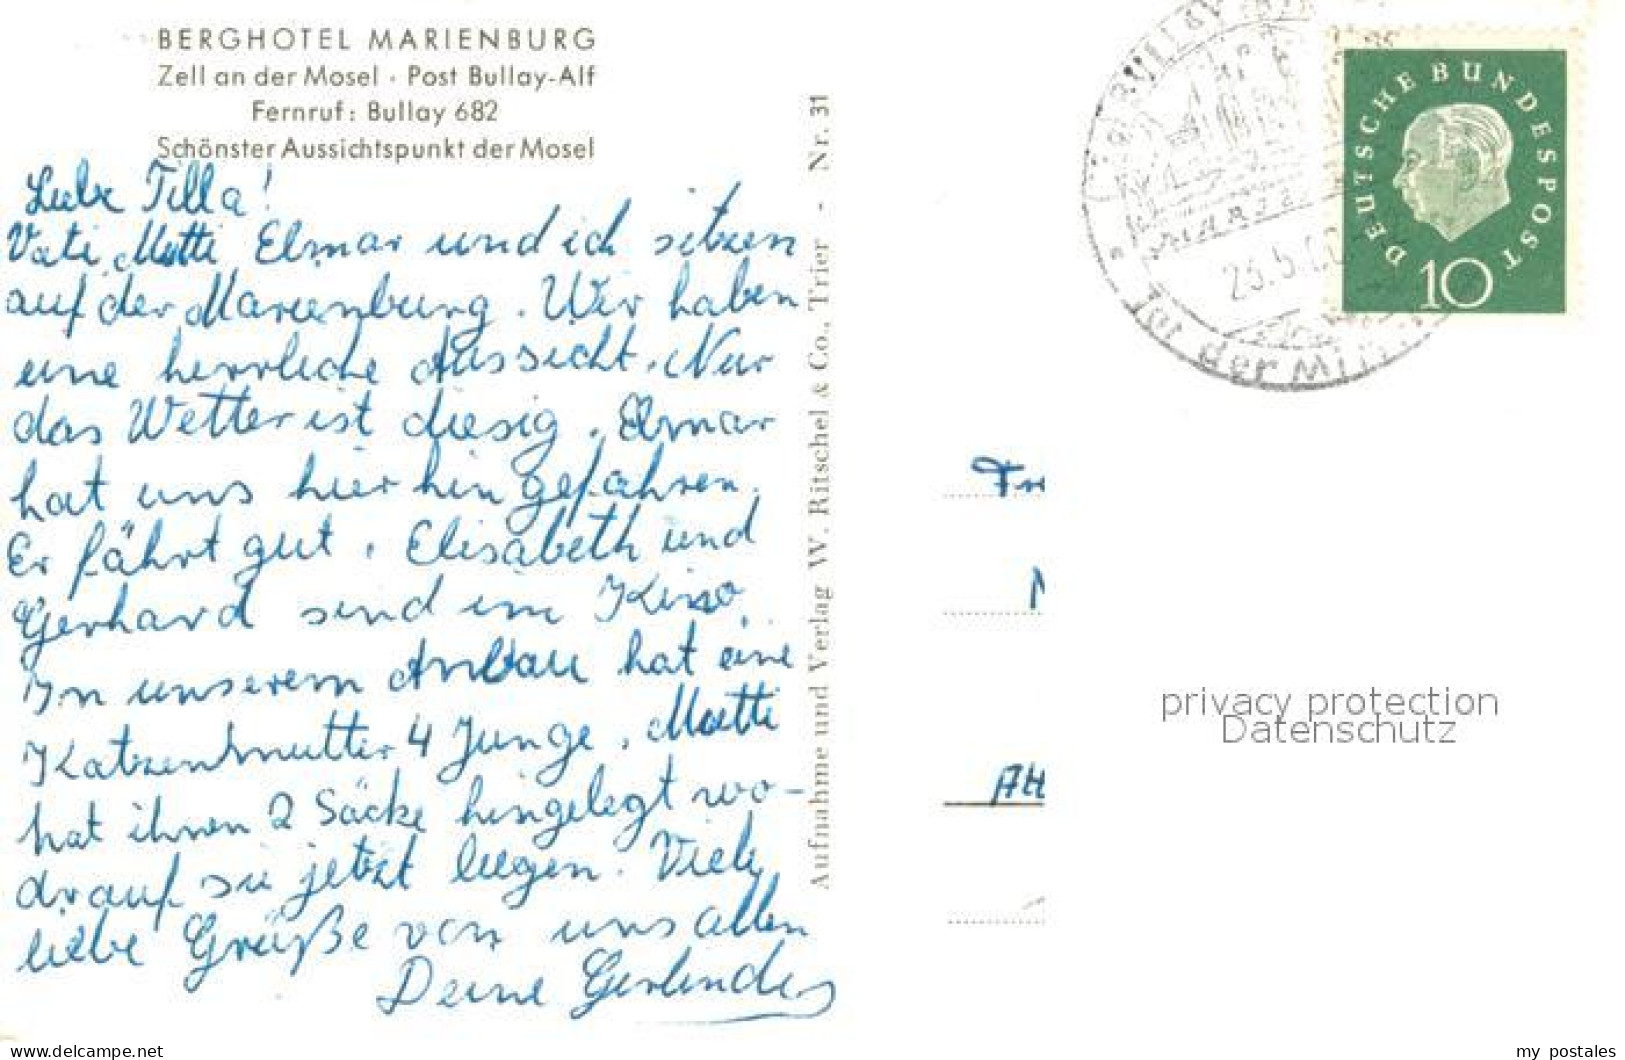 BERGHOTEL MARIENBURG
Zell an der Mosel · Post Bullay-Alf
Fernruf: Bullay 682
Schönster Aussichtspunkt der Mosel
Liebe Tilla!
Vati, Mutti, Elmar und ich sitzen
auf der Marienburg. Wir haben
eine herrliche Aussicht. Nur
das Wetter ist diesig. Elmar
hat uns hier hin gefahren.
Er fährt gut. Elisabeth und
Gerhard sind im Kino.
In unserem Anbau hat eine
Katzenmutter 4 Junge. Mutti
hat ihnen 2 Säcke hingelegt wo-
drauf sie jetzt liegen. Viele
liebe Grüße von uns allen
Deine Gerlinde
Aufnahme und Verlag W. Ritschel & Co., Trier - Nr. 31
BULLAY
23.5.60
der Mi
DEUTSCHE BUNDESPOST
10
Fr
AH
privacy protection
Datenschutz
delcampe.net
my_postales